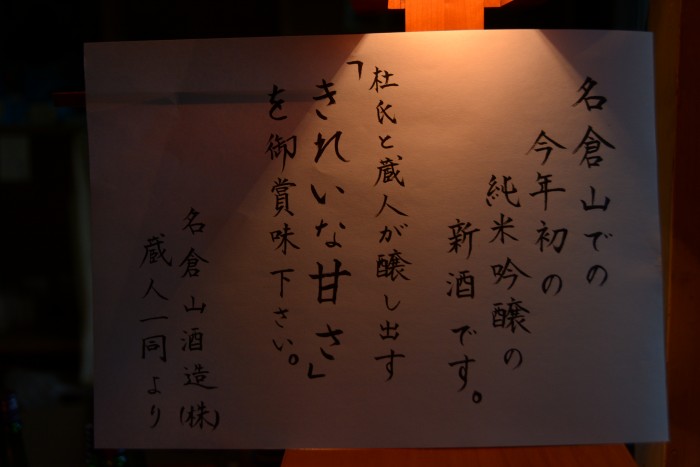 名倉山での
今年初の
純米吟醸の
新酒です。
杜氏と蔵人が醸し出す
「きれいな甘さ」
を御賞味下さい。
名倉山酒造(株)
蔵人一同より